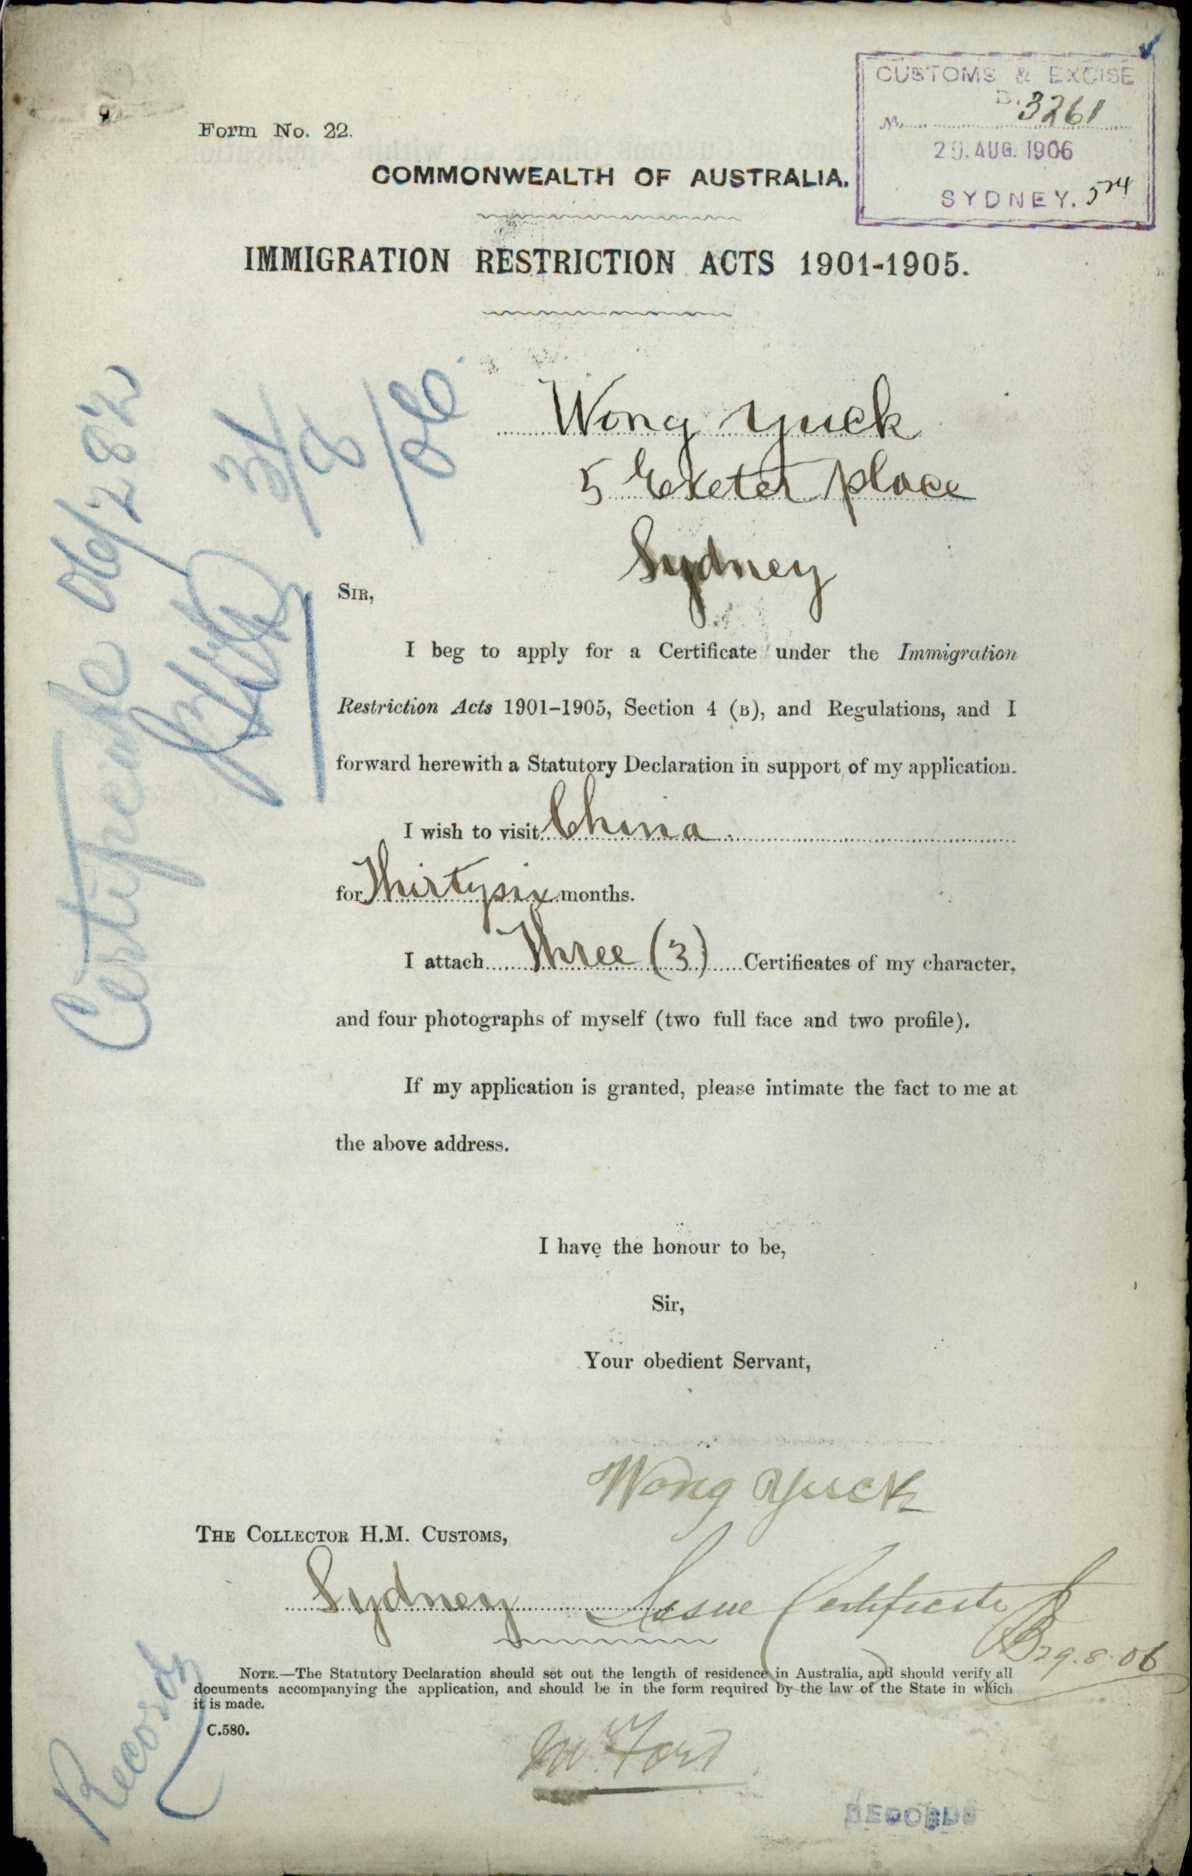 CUSTOMS & EXCISE
3261
29. AUG. 1906
SYDNEY. 574
Form No. 22.
COMMONWEALTH OF AUSTRALIA.
IMMIGRATION RESTRICTION ACTS 1901-1905.
Wong Yuck
5 Exeter place
Sydney
Certificate 06/282
31/8/06
SIR,
I beg to apply for a Certificate under the Immigration
Restriction Acts 1901–1905, Section 4 (B), and Regulations, and I
forward herewith a Statutory Declaration in support of my application.
I wish to visit China
for Thirtysix months.
I attach Three (3) Certificates of my character,
and four photographs of myself (two full face and two profile).
If my application is granted, please intimate the fact to me at
the above address.
I have the honour to be,
Sir,
Your obedient Servant,
Wong Yuck
THE COLLECTOR H.M. CUSTOMS,
Sydney
Issue Certificate
29.8.06
NOTE.—The Statutory Declaration should set out the length of residence in Australia, and should verify all
documents accompanying the application, and should be in the form required by the law of the State in which
it is made.
C.580.
Records
RECORDS